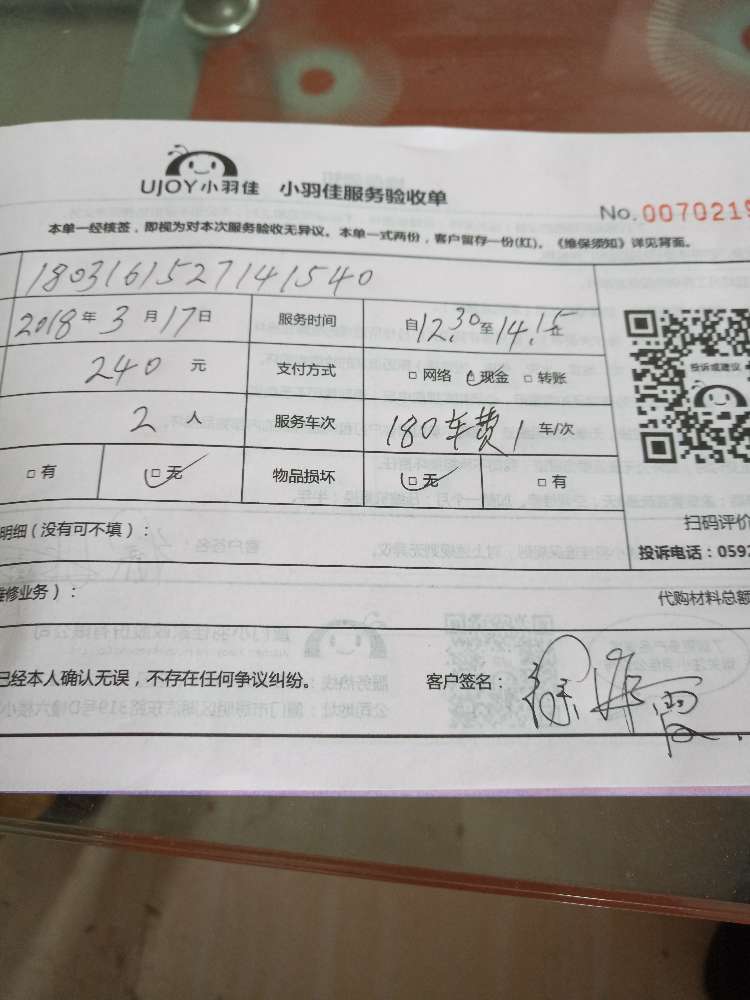 UJOY小羽佳 小羽佳服务验收单
No. 0070219
本单一经核签，即视为对本次服务验收无异议。本单一式两份，客户留存一份(红)。《维保须知》详见背面。
1803161527141540
2018年3月17日 服务时间 自12.30至14.15止
投诉或建议
240元 支付方式 □网络 □现金 □转账
2人 服务车次 180车费1车/次
□有 □无 物品损坏 □无 □有
扫码评价
明细(没有可不填)：
投诉电话：0592
维修业务)：
代购材料总额
已经本人确认无误，不存在任何争议纠纷。 客户签名：